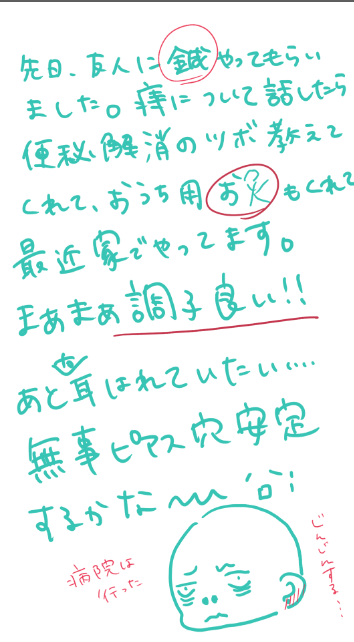 先日、友人に鍼やってもらい
ました。痔について話したら
便秘解消のツボ教えて
くれて、おうち用お灸もくれて
最近家でやってます。
まあまあ調子良い!!
あと耳はれていたい……
無事ピアス穴安定
するかな〜
病院は
行った
じんじんする…